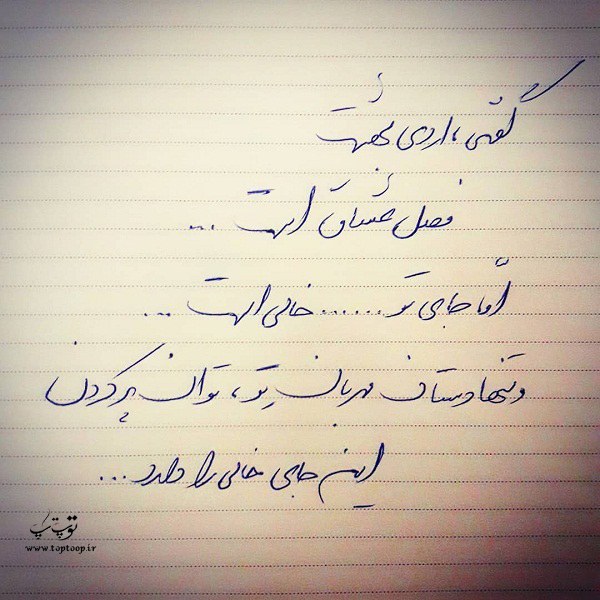 گفتی، اردی بهشت
فصل عشاق است ...
اما جای تو ...... خالی است ...
و تنها دستان مهربانِ تو، توان پر کردن
این جای خالی را دارد ...
توپ تاپ
www.toptoop.ir